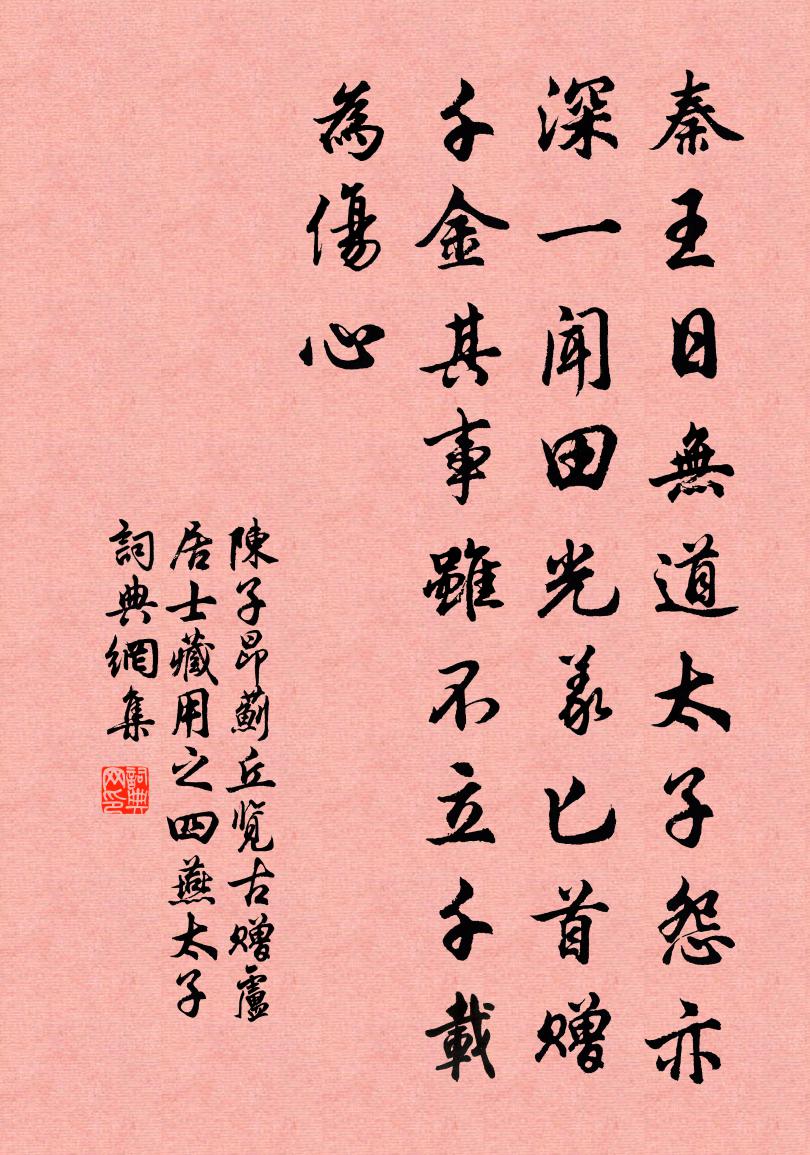 秦王日無道太子怨亦
深一聞田光義匕首贈
千金其事雖不立千載
為傷心
陳子昂薊丘覽古贈盧
居士藏用之四燕太子
詞典網集
詞典
网印